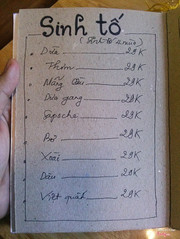 Sinh tố
Dừa 28K
Thơm 28K
Mãng Cầu 28K
Dưa gang 28K
Sapoche 28K
Bơ 28K
Xoài 28K
Dâu 28K
Việt quất 28K